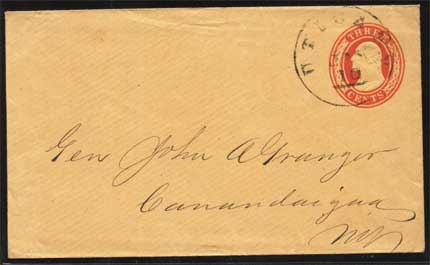 UTICA N
THREE
19
CENTS
Gen John A Granger
Canandaigua
NY